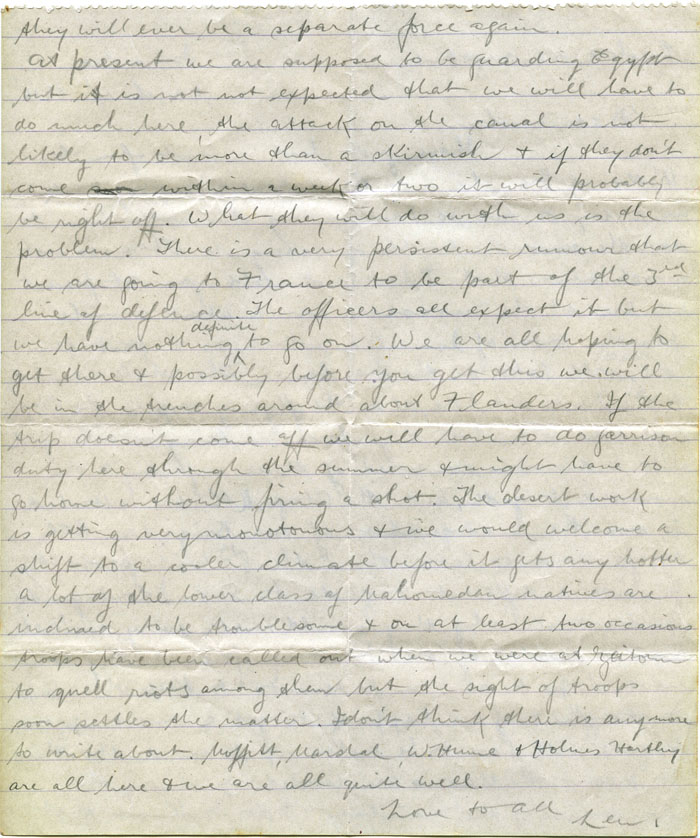 they will ever be a separate force again.
At present we are supposed to be guarding Egypt
but it is not not expected that we will have to
do much here, the attack on the canal is not
likely to be more than a skirmish & if they don't
come within a week or two it will probably
be right off. What they will do with us is the
problem. There is a very persistent rumour that
we are going to France to be part of the 3rd
line of defence. The officers all expect it but
we have nothing definite to go on. We are all hoping to
get there & possibly before you get this we will
be in the trenches around about Flanders. If the
trip doesnt come off we will have to do garrison
duty here through the summer & might have to
go home without firing a shot. The desert work
is getting very monotonous & we would welcome a
shift to a cooler climate before it gets any hotter
a lot of the lower class of Mahomedan natives are
inclined to be troublesome & on at least two occasions
troops have been called out when we were at Zeitoun
to quell riots among them but the sight of troops
soon settles the matter. I don't think there is anymore
to write about. Moffitt, W. Hume & Holmes Hartley
are all here & we are all quite well.
Love to all Len.